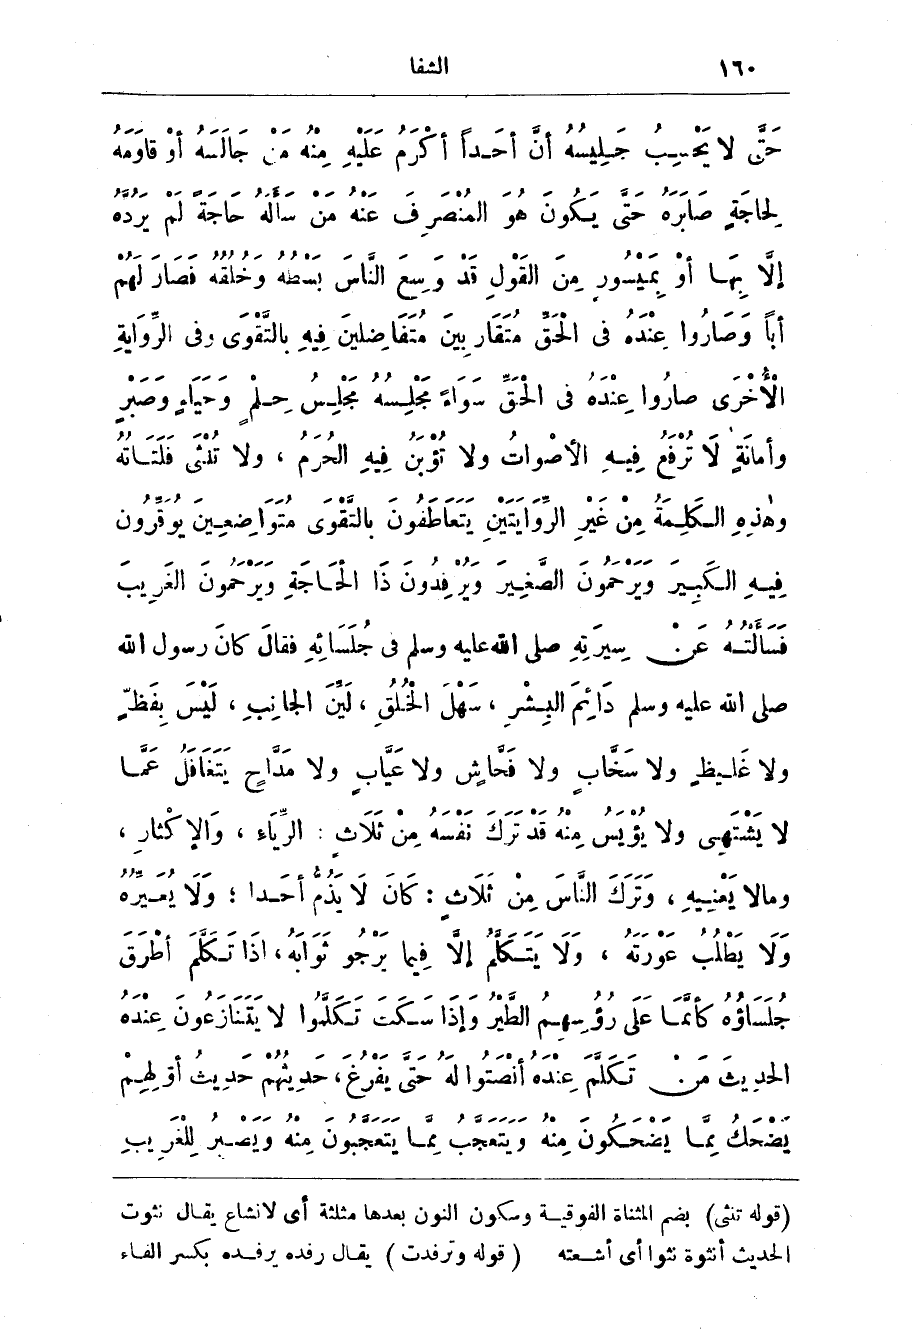 ١٦٠ الشفا
حَتَّى لا يَحْسِبُ جَلِيسُهُ أنَّ أحَداً أكْرَمُ عَلَيْهِ مِنْهُ مَنْ جَالَسَهُ أوْ قاوَمَهُ
لِحاجَةٍ صَابَرَهُ حَتَّى يَكُونَ هُوَ المُنْصَرِفَ عَنْهُ مَنْ سَأَلَهُ حَاجَةً لَمْ يَرُدَّهُ
إلَّا بِهَا أوْ بِمَيْسُورٍ مِنَ القَوْلِ قَدْ وَسِعَ النَّاسَ بَسْطُهُ وَخُلُقُهُ فَصَارَ لَهُمْ
أباً وَصَارُوا عِنْدَهُ فى الحَقِّ مُتَقَارِبِينَ مُتَفَاضِلِينَ فِيهِ بالتَّقْوَى وفى الرِّوَايَةِ
الْأُخْرَى صارُوا عِنْدَهُ فى الحَقِّ سَوَاءً مَجْلِسُهُ مَجْلِسُ حِلْمٍ وَحَيَاءٍ وَصَبْرٍ
وأمانَةٍ لَا تُرْفَعُ فِيهِ الأصْواتُ ولا تُؤْبَنُ فِيهِ الحُرَمُ ، ولا تُنْثَى فَلَتَاتُهُ
وهٰذِهِ الكَلِمَةُ مِنْ غَيْرِ الرِّوَايَتَيْنِ يَتَعَاطَفُونَ بالتَّقْوَى مُتَوَاضِعِينَ يُوَقِّرُونَ
فِيهِ الكَبِيرَ وَيَرْحَمُونَ الصَّغِيرَ وَيَرْفِدُونَ ذَا الحَاجَةِ وَيَرْحَمُونَ الغَرِيبَ
فَسَأَلْتُهُ عَنْ سِيرَتِهِ صلى الله عليه وسلم فى جُلَسَائِهِ فقالَ كانَ رسول الله
صلى الله عليه وسلم دَائِمَ البِشْرِ ، سَهْلَ الخُلُقِ ، لَيِّنَ الجانِبِ ، لَيْسَ بِفَظٍّ
ولا غَلِيظٍ ولا سَخَّابٍ ولا فَحَّاشٍ ولا عَيَّابٍ ولا مَدَّاحٍ يَتَغَافَلُ عَمَّا
لا يَشْتَهِى ولا يُؤْيِسُ مِنْهُ قَدْ تَرَكَ نَفْسَهُ مِنْ ثَلَاثٍ : الرِّيَاءِ ، وَالإكْثارِ ،
ومالا يَعْنِيهِ ، وَتَرَكَ النَّاسَ مِنْ ثَلَاثٍ : كَانَ لَا يَذُمُّ أحَدا ؛ وَلَا يُعَيِّرُهُ
وَلَا يَطْلُبُ عَوْرَتَهُ ، وَلَا يَتَكَلَّمُ إلَّا فِيما يَرْجُو ثَوَابَهُ ، اذَا تَكَلَّمَ أطْرَقَ
جُلَسَاؤُهُ كأنَّمَا عَلَى رُؤُسِهِمُ الطَّيْرُ وَإذَا سَكَتَ تَكَلَّمُوا لا يَتَنَازَعُونَ عِنْدَهُ
الحَدِيثَ مَنْ تَكَلَّمَ عِنْدَهُ أنْصَتُوا لَهُ حَتَّى يَفْرُغَ ، حَدِيثُهُمْ حَدِيثُ أوَّلِهِمْ
يَضْحَكُ مِمَّا يَضْحَكُونَ مِنْهُ وَيَتَعَجَّبُ مِمَّا يَتَعَجَّبُونَ مِنْهُ وَيَصْبِرُ لِلْغَرِيبِ
(قوله تنثى) بضم المثناة الفوقية وسكون النون بعدها مثلثة أى لاتشاع يقال نثوت
الحديث أنثوة نثوا أى أشعته (قوله وترفدت) يقال رفده يرفده بكسر الفاء